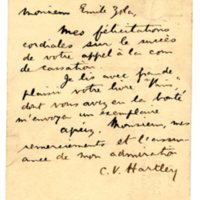 Monsieur Emile Zola,
Mes félicitations
cordiales sur le succès
de votre appel à la cour
de cassation.
Je lis avec grande
plaisir votre livre "Paris",
dont vous avez eu la bonté
m'envoya un exemplaire
Agréz, Monsieur, mes
remerciements et l'assur-
ance de mon admiration
C. V. Hartley